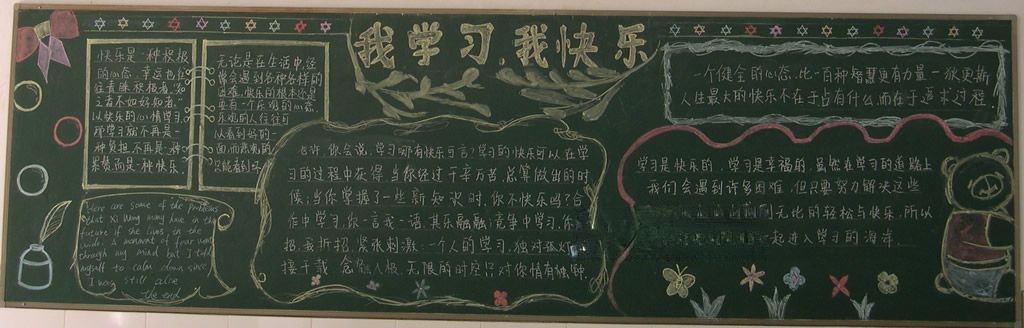 我学习,我快乐
快乐是一种积极
的心态,幸运也往
往青睐积极者,"知
之者不如好知者。"
以快乐的心情学习,
学习就不再是一
种负担,不再是一种
而是一种快乐
无论是在生活中,经
常会遇到各种各样的
困难,快乐的根本还是
要有一个乐观的心态,
乐观的人往往可
以看到好的一
面,而悲观的
只能看到坏
一个健全的心态,比一百种智慧更有力量—狄更斯
人生最大的快乐不在于占有什么,而在于追求过程.
也许,你会说,学习哪有快乐可言?学习的快乐可以在学
习的过程中获得,当你经过千辛万苦,总算做出的时
候;当你掌握了一些新知识时,你不快乐吗?合
作中学习,你一言我一语,其乐融融;竞争中学习,你
招,我拆招,紧张刺激;一个人的学习,独对孤灯
接千载,人极,无限的时空只对你情有独钟.
学习是快乐的,学习是幸福的,虽然在学习的道路上
我们会遇到许多困难,但只要努力解决这些
无比的轻松与快乐,所以
一起进入学习的海岸.
Here are some of the problems
that Xi Wang may have in the
future if she lives in the
wild. A moment of fear went
through my mind but I told
myself to calm down since
I was still alive
The end